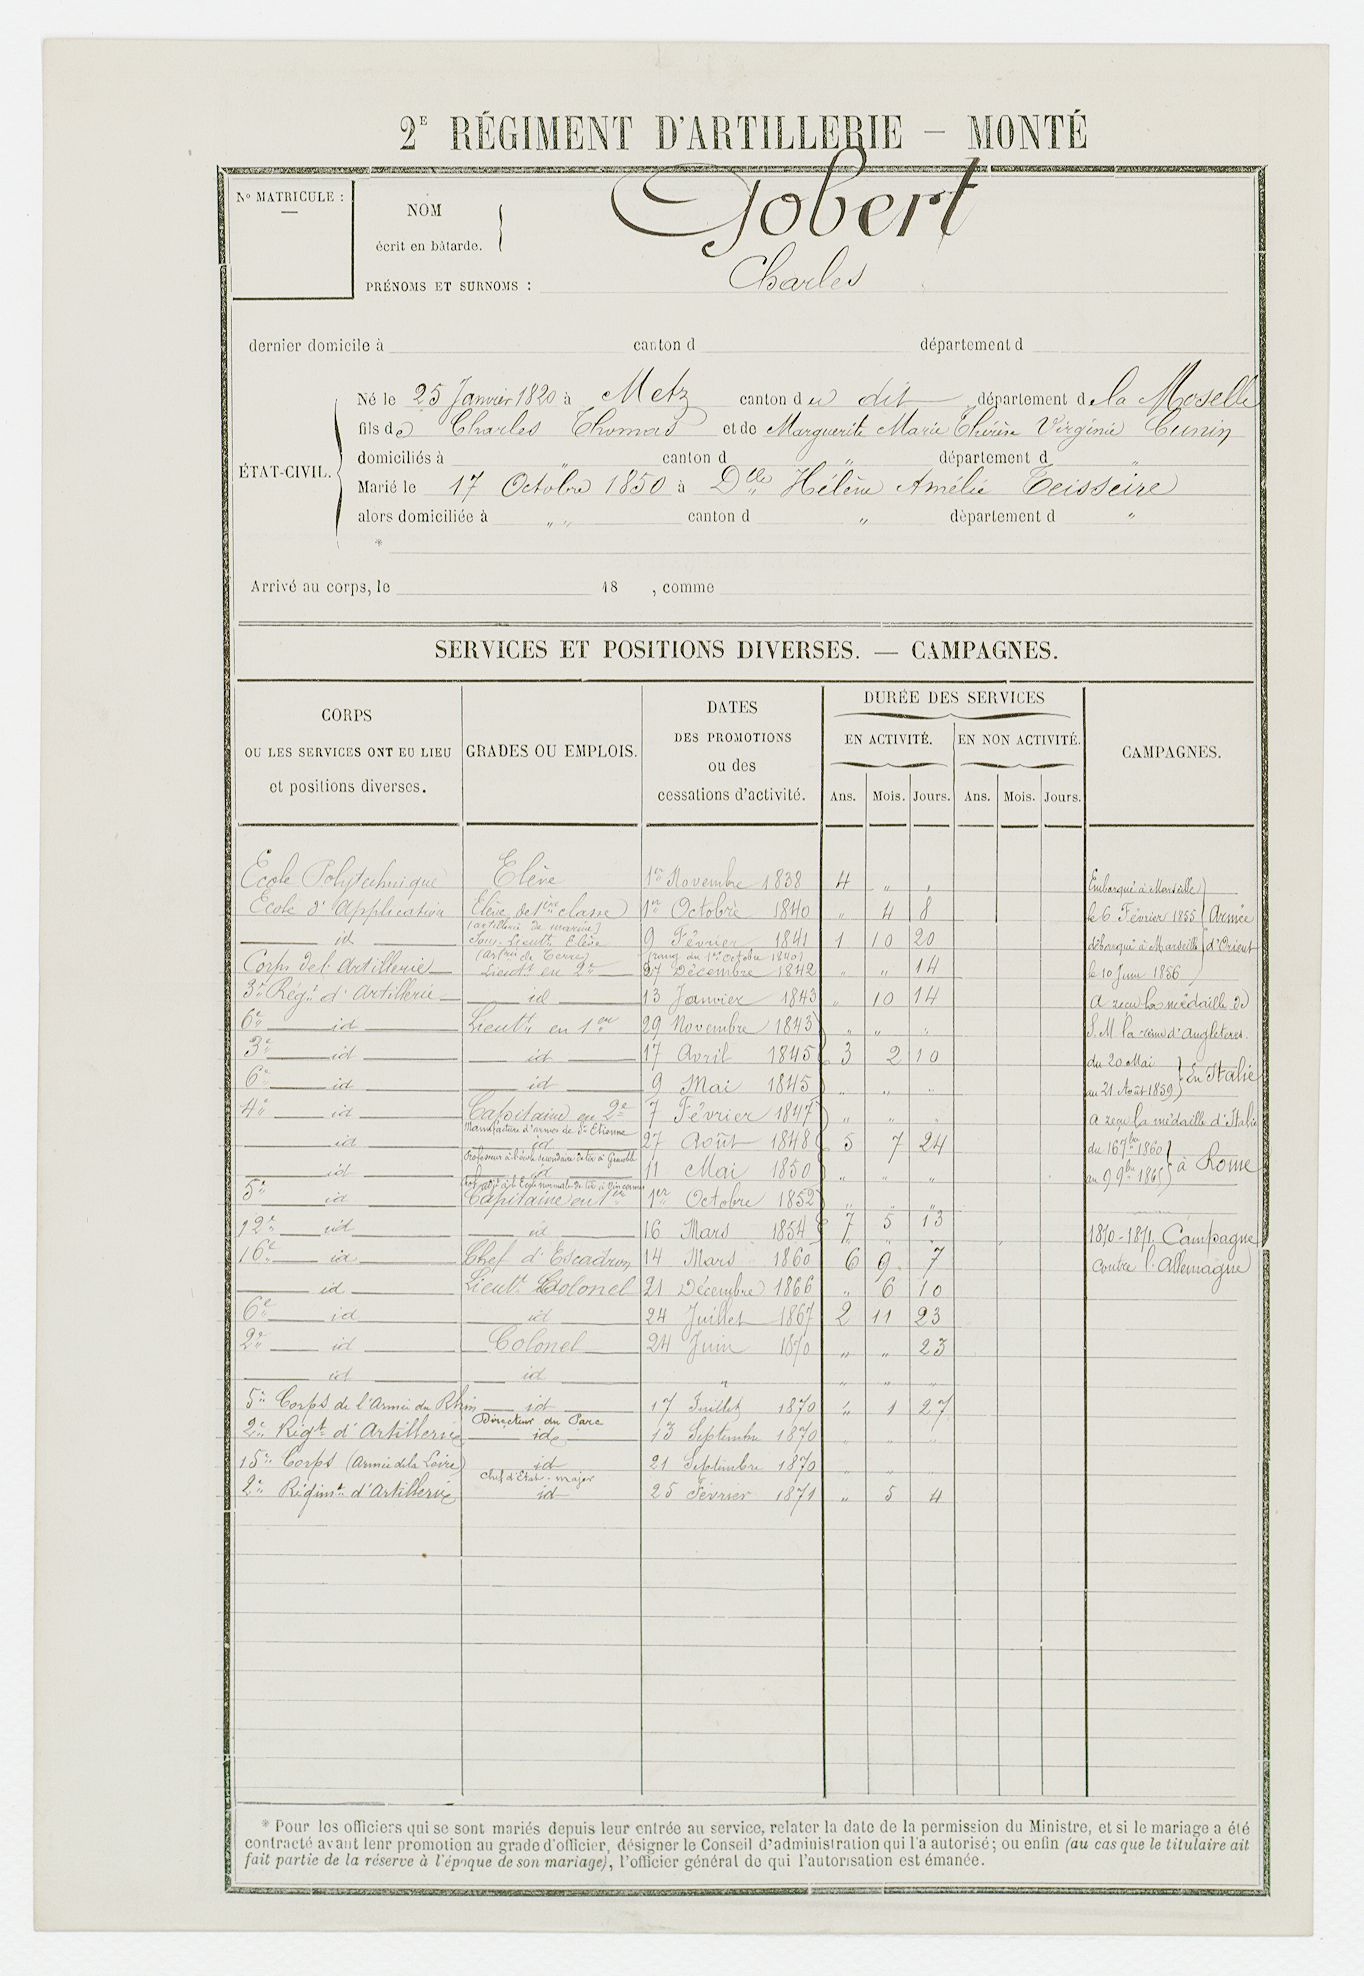 2E RÉGIMENT D'ARTILLERIE — MONTÉ
No MATRICULE :
NOM
écrit en bâtarde.
Gobert
PRÉNOMS ET SURNOMS : Charles
dernier domicile à canton d département d
ÉTAT-CIVIL.
Né le 25 Janvier 1820 à Metz canton du dit département de la Moselle
fils de Charles Thomas et de Marguerite Marie Thérèse Virginie Cunin
domiciliés à " canton d " département d "
Marié le 17 Octobre 1850 à Dlle Hélène Amélie Teisseire
alors domiciliée à " " canton d " département d "
*
Arrivé au corps, le 18 , comme
SERVICES ET POSITIONS DIVERSES. — CAMPAGNES.
CORPS
OU LES SERVICES ONT EU LIEU
et positions diverses.
GRADES OU EMPLOIS.
DATES
DES PROMOTIONS
ou des
cessations d'activité.
DURÉE DES SERVICES
EN ACTIVITÉ. EN NON ACTIVITÉ.
Ans. Mois. Jours. Ans. Mois. Jours.
CAMPAGNES.
Ecole Polytechnique Elève 1er Novembre 1838 4 " "
Ecole d'Application Elève de 1ère classe 1er Octobre 1840 " 4 8
(artillerie de marine)
id Sous-Lieutt Elève 9 Février 1841 1 10 20
(artrie de Terre) (rang du 1er Octobre 1840)
Corps de l'Artillerie Lieutt en 2e 27 Décembre 1842 " " 14
3e Régt d'Artillerie id 13 Janvier 1843 " 10 14
6e id Lieutt en 1er 29 Novembre 1843 " " "
3e id id 17 Avril 1845 3 2 10
6e id id 9 Mai 1845 " " "
4e id Capitaine en 2e 7 Février 1847 " " "
Manufacture d'armes de St Etienne
id id 27 Août 1848 5 7 24
Professeur à l'école secondaire de tir à Grenoble
id id 11 Mai 1850 " " "
adjt à l'Ecole normale de tir à Vincennes
5e id Capitaine en 1er 1er Octobre 1852 " " "
12e id id 16 Mars 1854 7 5 13
16e id Chef d'Escadron 14 Mars 1860 6 9 7
id Lieutt Colonel 21 Décembre 1866 " 6 10
6e id id 24 Juillet 1867 2 11 23
2e id Colonel 24 Juin 1870 " " 23
id id " " " "
5e Corps de l'Armée du Rhin id 17 Juillet 1870 " 1 27
Directeur du Parc
2e Régt d'Artillerie id 13 Septembre 1870 " " "
15e Corps (Armée de la Loire) id 21 Septembre 1870 " " "
Chef d'Etat-major
2e Régimt d'Artillerie id 25 Février 1871 " 5 4
Embarqué à Marseille
le 6 Février 1855
débarqué à Marseille
le 10 Juin 1856
Armée
d'Orient
A reçu la médaille de
S. M. la reine d'Angleterre.
du 20 Mai
au 21 Août 1859
En Italie
a reçu la médaille d'Italie
du 16 7bre 1860
au 9 9bre
à Rome
1870-1871 Campagne
contre l'Allemagne
* Pour les officiers qui se sont mariés depuis leur entrée au service, relater la date de la permission du Ministre, et si le mariage a été
contracté avant leur promotion au grade d'officier, désigner le Conseil d'administration qui l'a autorisé; ou enfin (au cas que le titulaire ait
fait partie de la réserve à l'époque de son mariage), l'officier général de qui l'autorisation est émanée.